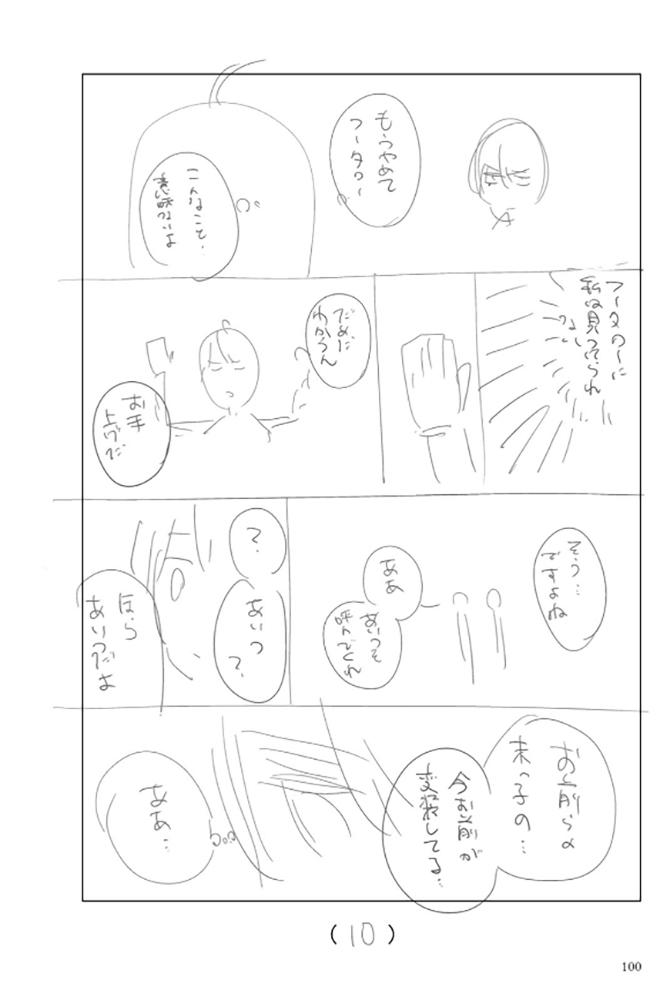 もうやめて
フータロー
こんなこと…
意味ないよ
フータローに
私は見つけられ
ない
だめだ
わからん
お手
上げだ
そう…
ですよね
ああ
あいつを
呼んでくれ
?
あいつ
?
ほら
あいつだよ
お前らの
末っ子の…
今お前が
変装してる…
ああ…
(10)
100